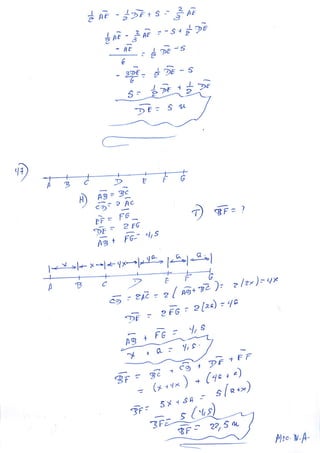 1/2 AE - 1/2 DE + 5 = 2/3 AE
1/2 AE - 2/3 AE = -5 + 1/2 DE
- AE/6 = 1/2 DE - 5
5 = 1/2 DE + 1/2 DE
DE = 5 u
47)
A B C D E F G
H) AB = BC
CD = 2 AC
EF = FG
DE = 2 FG
AB + FG = 4,5
T) BF = ?
x x 4x 4a a a
A B C D E F G
CD = 2AC = 2(AB + BC) = 2(2x) = 4x
DE = 2 FG = 2(2a) = 4a
AB + FG = 4,5
x + a = 4,5
BF = BC + CD + DE + EF
= (x+4x) + (4a + a)
BF = 5x + 5a = 5(a+x)
BF = 5(4,5)
BF = 22,5 u